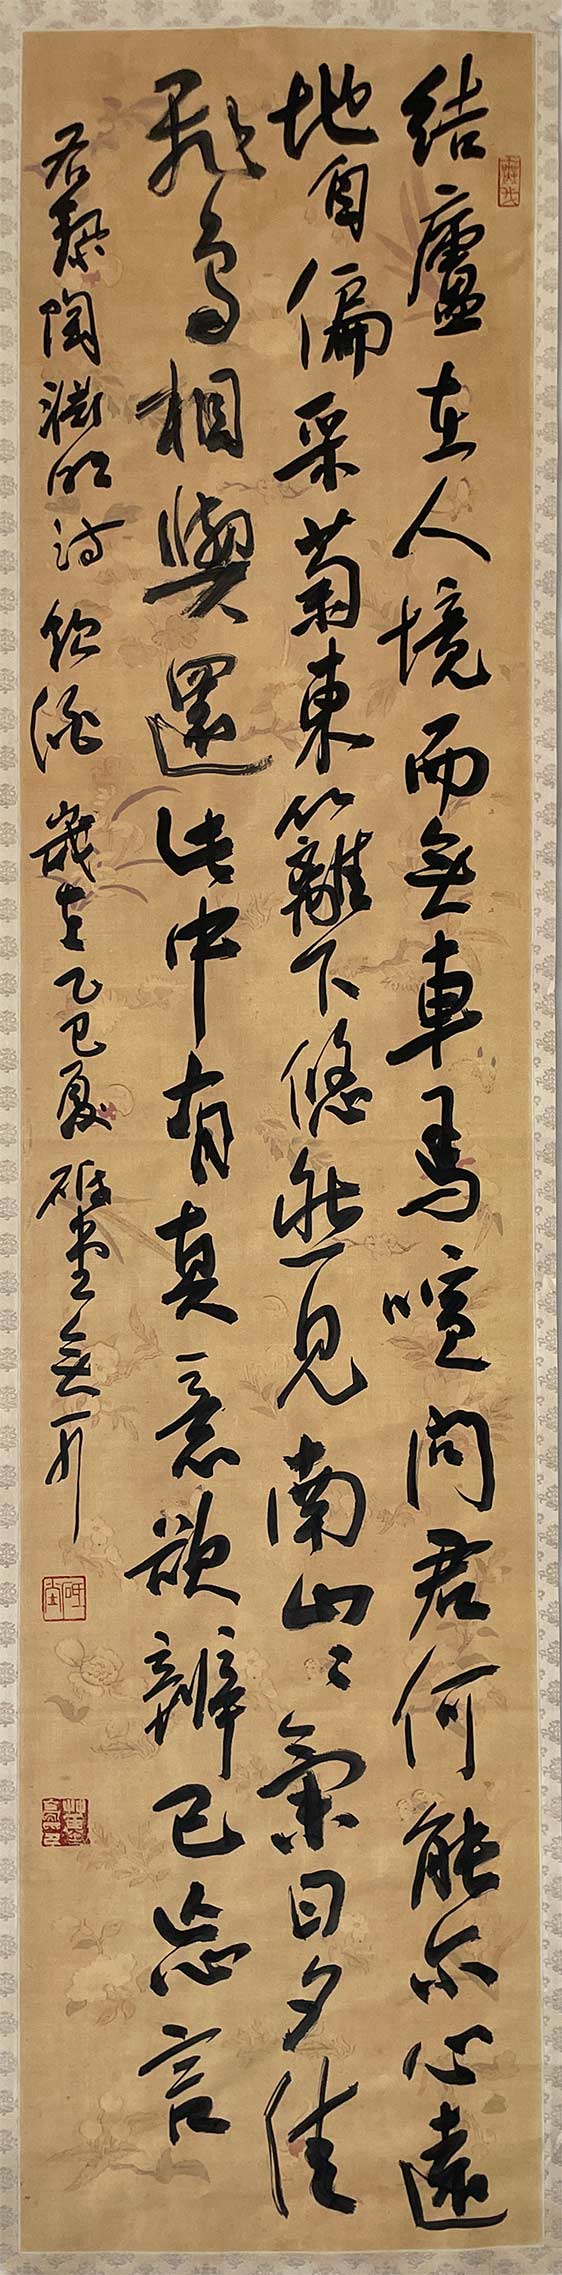 結廬在人境而無車馬喧問君何能尔心遠
地自偏采菊東籬下悠然見南山山氣日夕佳
飛鳥相與還此中有真意欲辨已忘言
右錄陶淵明詩飲酒歲在乙巳夏 堂